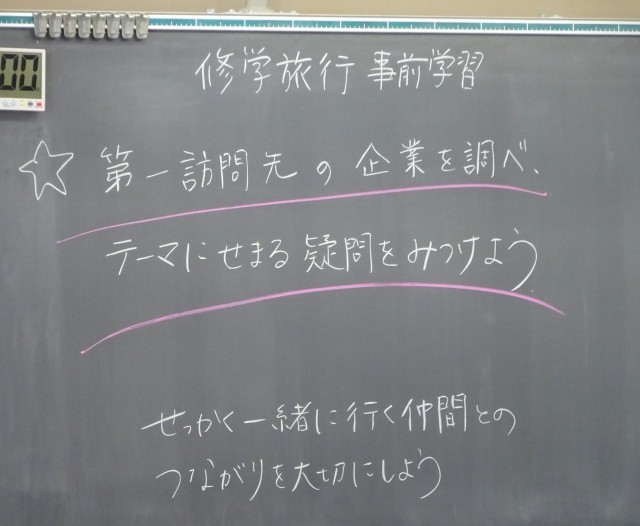 00
修学旅行 事前学習
☆ 第一訪問先の企業を調べ、
テーマにせまる疑問をみつけよう
せっかく一緒に行く仲間との
つながりを大切にしよう